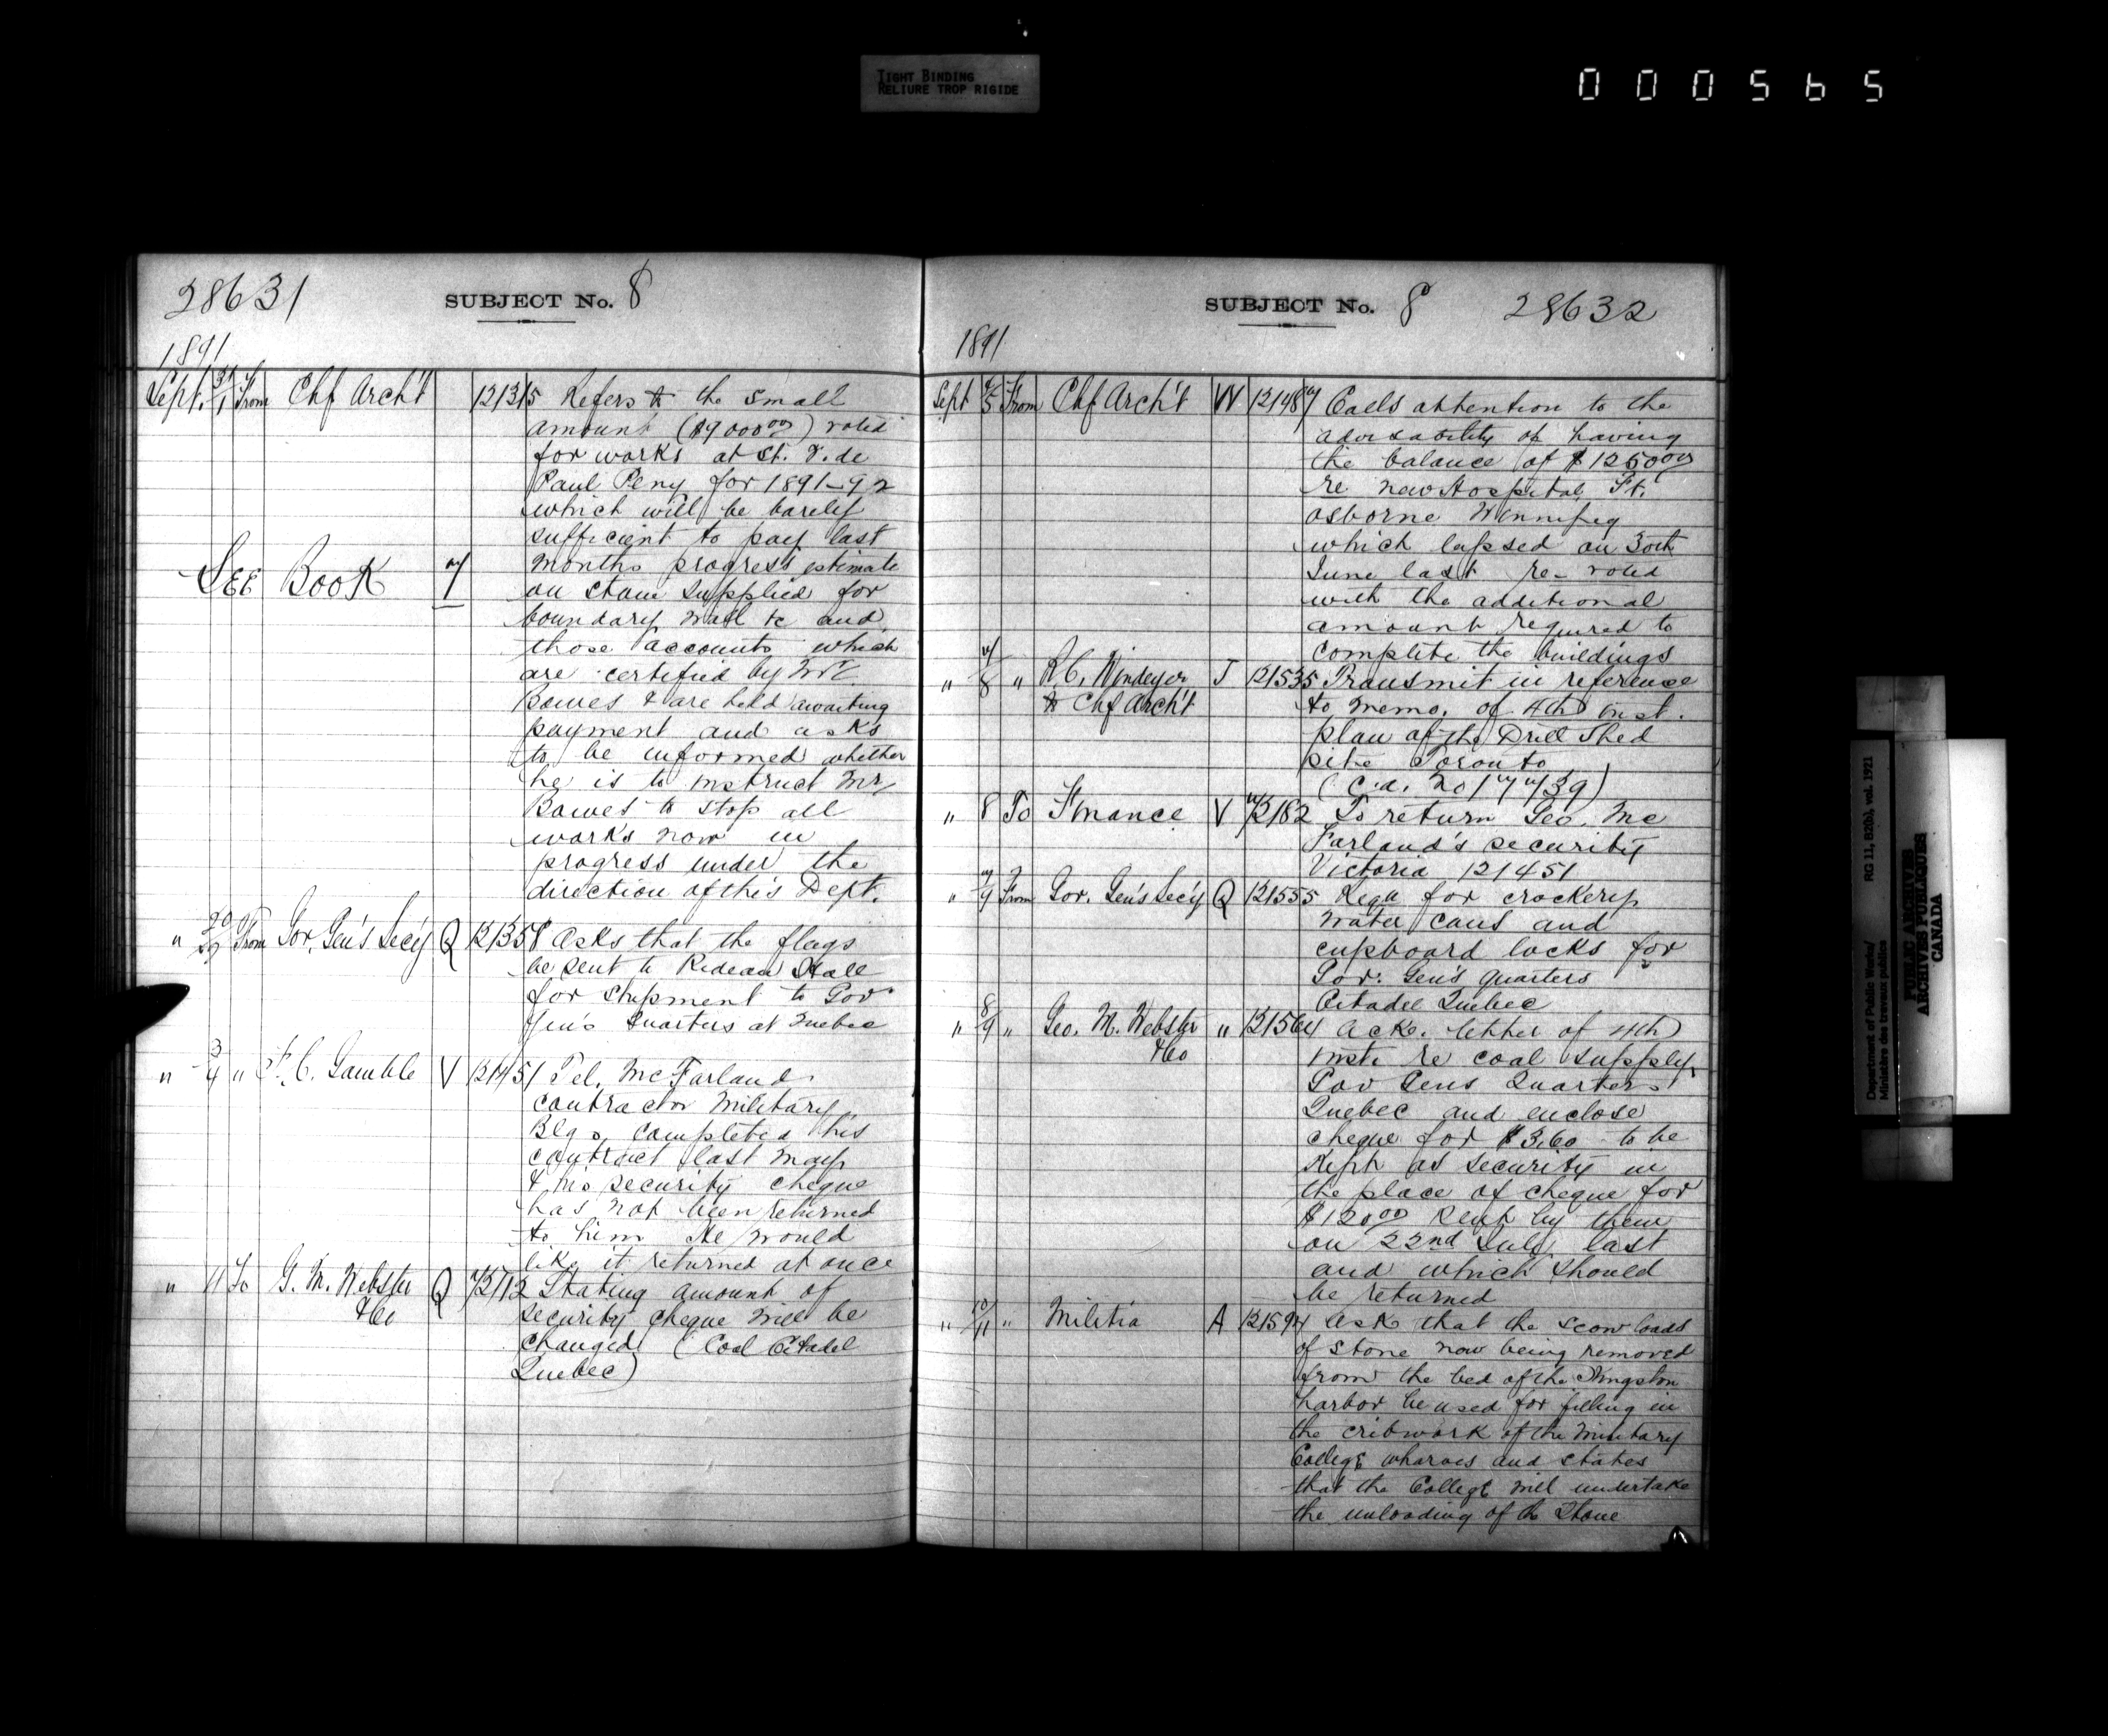 TIGHT BINDING
RELIURE TROP RIGIDE
000565
28631
SUBJECT No. 8
1891
Sept. 31/1 From Chf Arch't 121315 Refers to the small
amount ($9000⁰⁰) voted
for works at St. V. de
Paul Peny for 1891-92
which will be barely
sufficient to pay last
months progress estimate
SEE BOOK 7
on stone supplied for
boundary wall &c and
those accounts which
are certified by Mr
Bowes & are held awaiting
payment and asks
to be informed whether
he is to instruct Mr
Bowes to stop all
works now in
progress under the
direction of this Dept.
" From Gov. Gen's Sec'y Q 121358 Asks that the flags
be sent to Rideau Hall
for shipment to Gov
Gen's Quarters at Quebec
" 3/4 " F. C. Gamble V 121451 Tel. McFarland
contractor Military
Blgs. completed his
contract last May
& his security cheque
has not been returned
to him He would
like it returned at once
" 4 To G. M. Webster Q 72712 Stating amount of
&Co security cheque will be
changed (Coal Citadel
Quebec)
SUBJECT No. 8 28632
1891
Sept 4/5 From Chf Arch't W 121487 Calls attention to the
advisability of having
the balance of $1250⁰⁰
re new Hospital Ft.
Osborne Winnipeg
which lapsed on 30th
June last re-voted
with the additional
amount required to
complete the buildings
" 7/8 " R. C. Windeyer J 121535 Transmit in reference
to Chf Arch't to memo. of 4th inst.
plan of the Drill Shed
site Toronto
(C.a. No 17739)
" 8 To Finance V 72182 To return Geo. Mc
Farland's security
Victoria 121451
" 7/9 From Gov. Gen's Sec'y Q 121555 Requ for crockery
water cans and
cupboard locks for
Gov: Gen's quarters
Citadel Quebec
" 8/9 " Geo. M. Webster " 121564 Ack. letter of 4th
&Co inst. re coal supply
Gov Gens Quarters
Quebec and enclose
cheque for $3.60 to be
kept as security in
the place of cheque for
$120⁰⁰ sent by them
on 22nd July last
and which should
be returned
" 10/11 " Militia A 121594 Ask that the scow loads
of stone now being removed
from the bed of the Kingston
harbor be used for filling in
the cribwork of the Military
College wharves and states
that the College will undertake
the unloading of the Stone
Department of Public Works/ RG 11, B2(b), vol. 1921
Ministère des travaux publics
PUBLIC ARCHIVES
ARCHIVES PUBLIQUES
CANADA